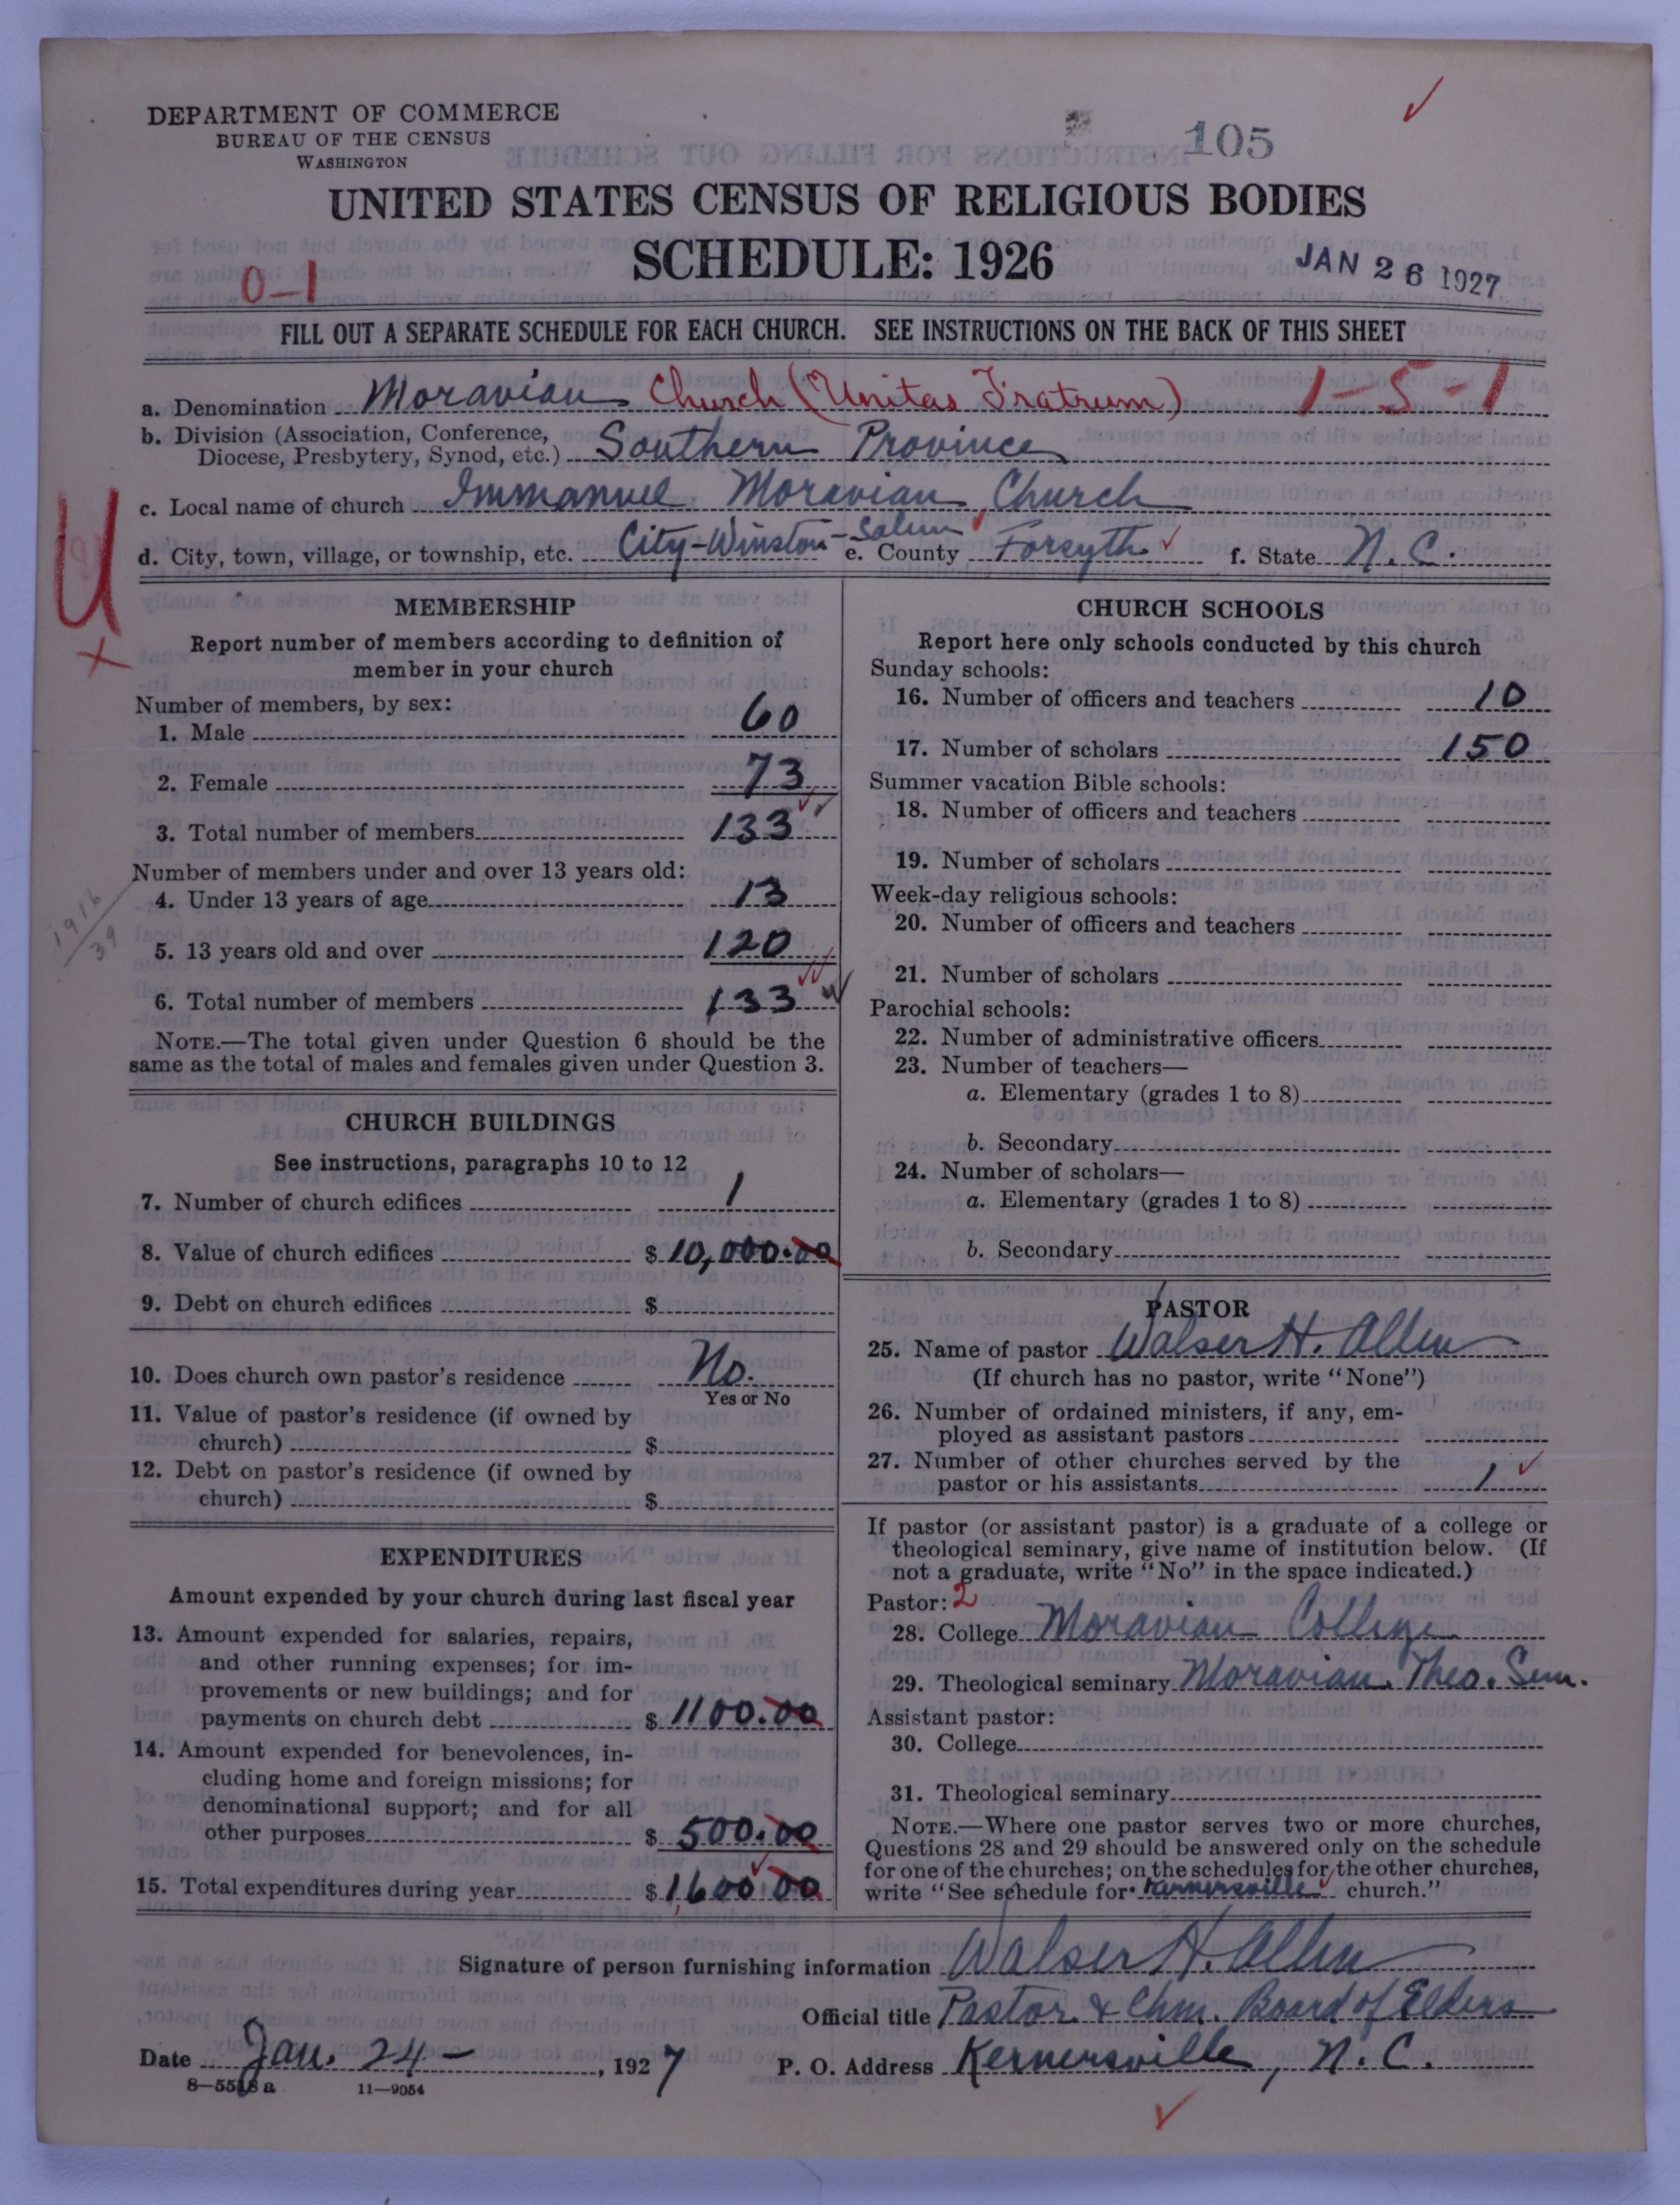 DEPARTMENT OF COMMERCE
BUREAU OF THE CENSUS
WASHINGTON
105
UNITED STATES CENSUS OF RELIGIOUS BODIES
SCHEDULE: 1926
JAN 26 1927
0-1
FILL OUT A SEPARATE SCHEDULE FOR EACH CHURCH. SEE INSTRUCTIONS ON THE BACK OF THIS SHEET
a. Denomination Moravian Church (Unitas Fratrum) 1-5-1
b. Division (Association, Conference,
Diocese, Presbytery, Synod, etc.) Southern Province
c. Local name of church Immanuel Moravian Church
d. City, town, village, or township, etc. City-Winston-Salem e. County Forsyth f. State N. C.
U
x
MEMBERSHIP
Report number of members according to definition of
member in your church
Number of members, by sex:
1. Male 60
2. Female 73
3. Total number of members 133
Number of members under and over 13 years old:
1916
39
4. Under 13 years of age 13
5. 13 years old and over 120
6. Total number of members 133
NOTE.—The total given under Question 6 should be the
same as the total of males and females given under Question 3.
CHURCH BUILDINGS
See instructions, paragraphs 10 to 12
7. Number of church edifices 1
8. Value of church edifices $ 10,000.00
9. Debt on church edifices $
10. Does church own pastor's residence No.
Yes or No
11. Value of pastor's residence (if owned by
church) $
12. Debt on pastor's residence (if owned by
church) $
EXPENDITURES
Amount expended by your church during last fiscal year
13. Amount expended for salaries, repairs,
and other running expenses; for im-
provements or new buildings; and for
payments on church debt $ 1100.00
14. Amount expended for benevolences, in-
cluding home and foreign missions; for
denominational support; and for all
other purposes $ 500.00
15. Total expenditures during year $ 1,600 00
CHURCH SCHOOLS
Report here only schools conducted by this church
Sunday schools:
16. Number of officers and teachers 10
17. Number of scholars 150
Summer vacation Bible schools:
18. Number of officers and teachers
19. Number of scholars
Week-day religious schools:
20. Number of officers and teachers
21. Number of scholars
Parochial schools:
22. Number of administrative officers
23. Number of teachers—
a. Elementary (grades 1 to 8)
b. Secondary
24. Number of scholars—
a. Elementary (grades 1 to 8)
b. Secondary
PASTOR
25. Name of pastor Walser H. Allen
(If church has no pastor, write "None")
26. Number of ordained ministers, if any, em-
ployed as assistant pastors
27. Number of other churches served by the
pastor or his assistants 1
If pastor (or assistant pastor) is a graduate of a college or
theological seminary, give name of institution below. (If
not a graduate, write "No" in the space indicated.)
Pastor: 2
28. College Moravian College
29. Theological seminary Moravian Theo. Sem.
Assistant pastor:
30. College
31. Theological seminary
NOTE.—Where one pastor serves two or more churches,
Questions 28 and 29 should be answered only on the schedule
for one of the churches; on the schedules for the other churches,
write "See schedule for Kernersville church."
Signature of person furnishing information Walser H. Allen
Official title Pastor & Chm. Board of Elders
Date Jan. 24 -, 1927 P. O. Address Kernersville, N. C.
8-5518 a 11-9054